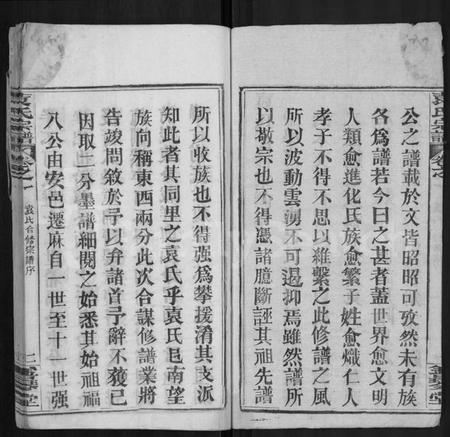 公之譜載於文皆昭昭可攷然未有族
各爲譜若今日之甚者蓋世界愈文明
人類愈進化氏族愈繁子姓愈熾仁人
孝子不得不思以維繫之此修譜之風
所以波動雲湧不可遏抑焉雖然譜所
以敬宗也不得憑諸臆斷誣其祖先譜
所以收族也不得强爲攀援淆其支派
知此者其同里之袁氏乎袁氏邑南望
族向稱東西兩分此次合謀修譜業將
告竣問敘於予以弁諸首予辭不獲已
因取二分墨譜細閱之始悉其始祖福
八公由安邑遷麻自一世至十一世强
袁氏宗譜 卷之一 袁氏合修宗譜序 二